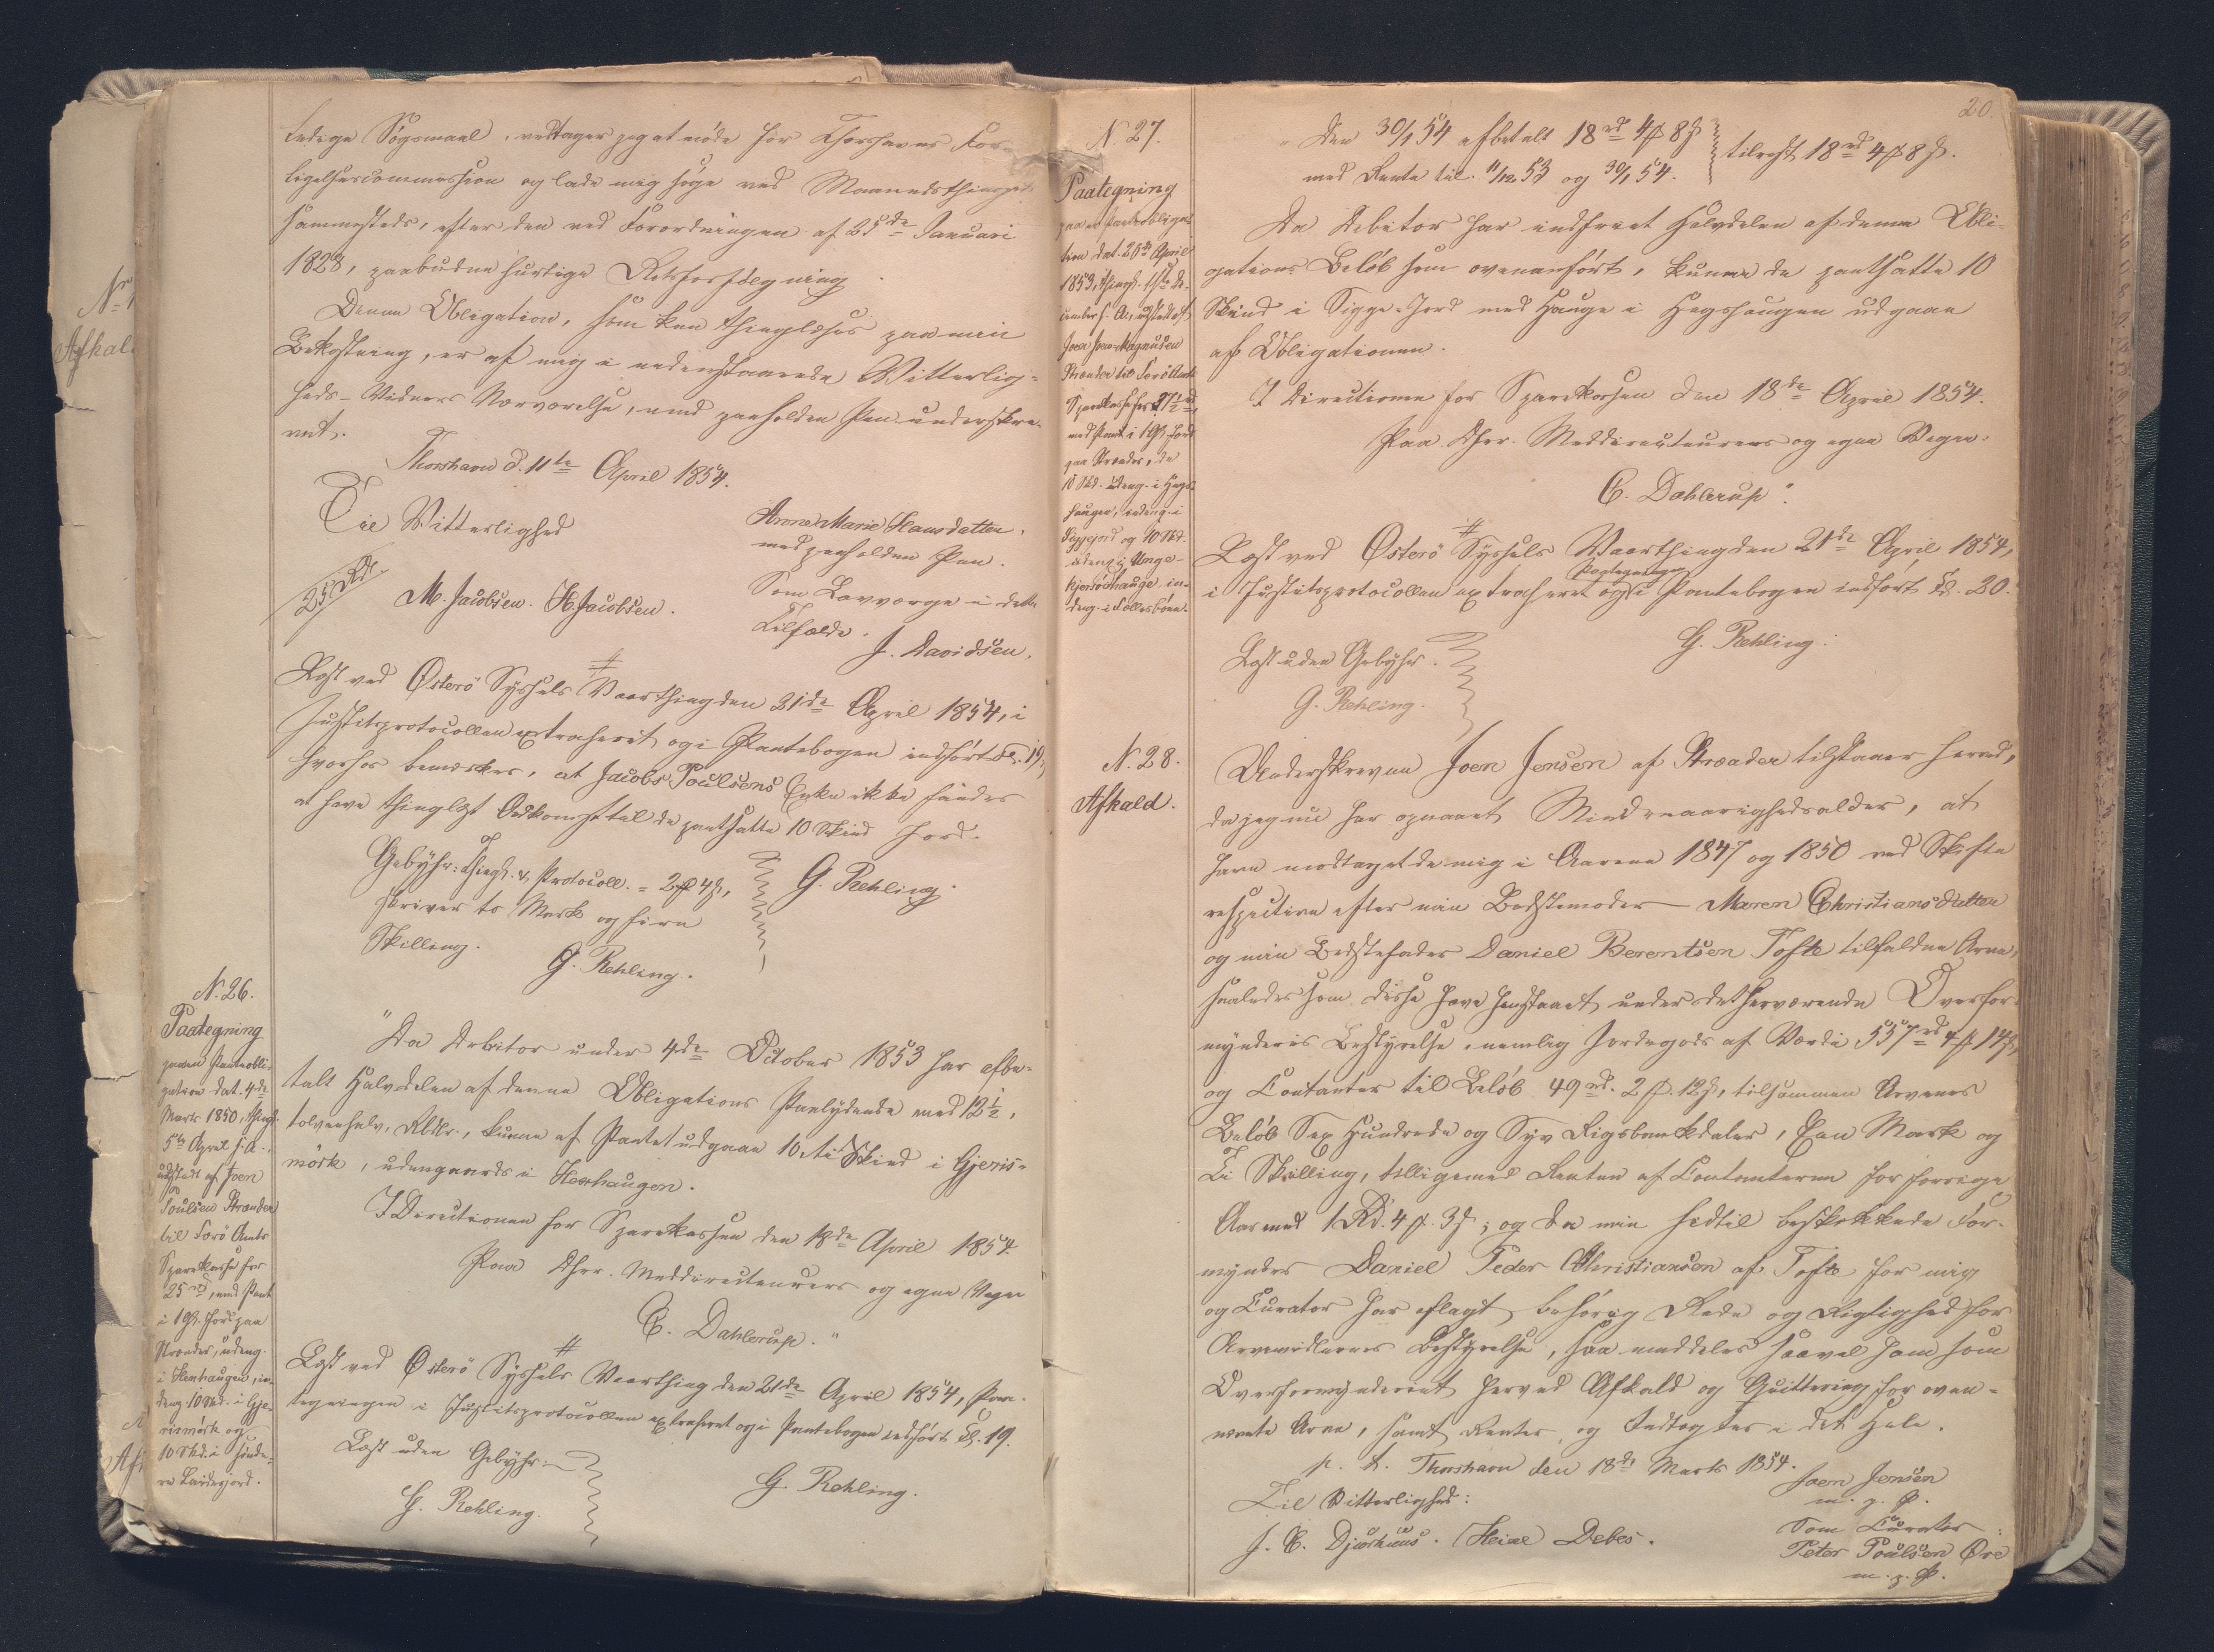 ledige Søgsmaal, vedtager jeg at møde for Thorshavns For-
ligelsescommission og lade mig søge ved Maanedsthinget
sammesteds, efter den ved Forordningen af 25de Januari
1828, paabudne hurtige Retsforfølgning.
Denne Obligation, som kan thinglæses paa min
Bekostning, er af mig i nederstaaende Vitterlig-
heds-Vidners Nærværelse, med paaholden Pen underskre-
vet.
Thorshavn d. 11te April 1854.
Til Vitterlighed
Anne Marie Hansdatter.
med paaholden Pen.
25 Rd.
M. Jacobsen. H. Jacobsen.
Som Lavværge i dette
Tilfælde.
J. Davidsen.
Læst ved Østerø Syssels Vaarthing den 21de April 1854, i
Justitsprotocollen extraheret og i Pantebogen indført Fol. 19,
hvorhos bemærkes, at Jacob Poulsens Enke ikke findes
at have thinglæst Adkomst til de pantsatte 10 Skind Jord.
Gebyhr: Thingl. & Protocoll. = 2 ₰ 4 ß,
skriver to Mark og fire
Skilling.
G. Rehling.
G. Rehling.
N. 26.
Paategning
paa en Pantobli-
gation dat. 4de
Marts 1850, thingl.
5te April s. A.,
udstedt af Joen
Poulsen Strænder
til Færø Amts
Sparekasse for
25 rd, med Pant
i 1 Gl. Jord paa
Strænder, udeng.
i Heshaugen, in-
deng. 10 Skd. i Gje-
rismørk og
10 Skd. i
"Da Debitor under 4de October 1853 har afbe-
talt Halvdelen af denne Obligations Paalydende med 12½,
tolvenhalv, Rbdlr., kunne af Pantet udgaae 10, ti Skind i Gjeris-
mørk, udengaards i Heshaugen.
I Directionen for Sparekassen den 18de April 1854.
Paa Dhrr. Meddirecteurers og egne Vegne
C. Dahlerup."
Læst ved Østerø Syssels Vaarthing den 21de April 1854, Paa-
tegningen i Justitsprotocollen extraheret og i Pantebogen indført Fol. 19.
Læst uden Gebyhr.
G. Rehling.
G. Rehling.
20.
N. 27.
Paategning
paa en Pantobliga-
tion dat. 20de April
1853, thingl. 1ste
udstedt af
Joen Joen Magnusen
Strænder til Færø Amts
Sparekasse for 37½ rd,
med Pant i 1 Gl. Jord
paa Strænder, de
10 Skd. udeng. i Hegs-
haugen, indeng. i
Siggejord og 10 Skd.
udeng. i Unge-
hauge in-
deng. i
"Den 30/1 54 afbetalt 18 rd 4 ₰ 8 ß
med Rente til 11/12 53 og 30/1 54.
tilrest 18 rd 4 ₰ 8 ß.
Da Debitor har indfriet Halvdelen af denne Obli-
gations Beløb som ovenanført, kunne de pantsatte 10
Skind i Sigge-Jord med Hauge i Hegshaugen udgaae
af Obligationen.
I Directionen for Sparekassen den 18de April 1854.
Paa Dhrr. Meddirecteurers og egne Vegne.
C. Dahlerup".
Læst ved Østerø Syssels Vaarthing den 21de April 1854,
i Justitsprotocollen extraheret og Paategningen i Pantebogen indført Fol. 20.
Læst uden Gebyhr.
G. Rehling.
G. Rehling.
N. 28.
Afkald.
Underskrevne Joen Jensen af Strænder tilstaaer herved,
da jeg nu har opnaaet Mindreaarighedsalder, at
have modtaget de mig i Aarene 1847 og 1850 ved Skifte
respective efter min Bedstemoder Maren Christiansdatter
og min Bedstefader Daniel Berentsen Tofte tilfaldne Arve,
saaledes som disse have henstaaet under det herværende Overfor-
mynderis Bestyrelse, nemlig Jordegods af Værdi 557 rd 4 ₰ 14 ß,
og Contanter til Beløb 49 rd. 2 ₰. 12 ß, tilsammen Arvenes
Beløb Sex Hundrede og Syv Rigsbankdaler, Een Mark og
Ti Skilling, tilligemed Renten af Contanterne for forrige
Aar med 1 Rd. 4 ₰. 3 ß; og da min hidtil beskikkede For-
mynder Daniel Peder Christiansen af Tofte for mig
og Curator har aflagt behørig Rede og Rigtighed for
Arvemidlernes Bestyrelse, saa meddeles saavel ham som
Overformynderiet herved Afkald og Quittering for oven-
nævnte Arve, samt Renter og Indtægter i det Hele.
p. t. Thorshavn den 18de Marts 1854.
Joen Jensen
m. p. P.
Til Vitterlighed:
J. C. Djurhuus. Heine Debes.
Som Curator:
Peter Poulsen Øre
m. p. P.